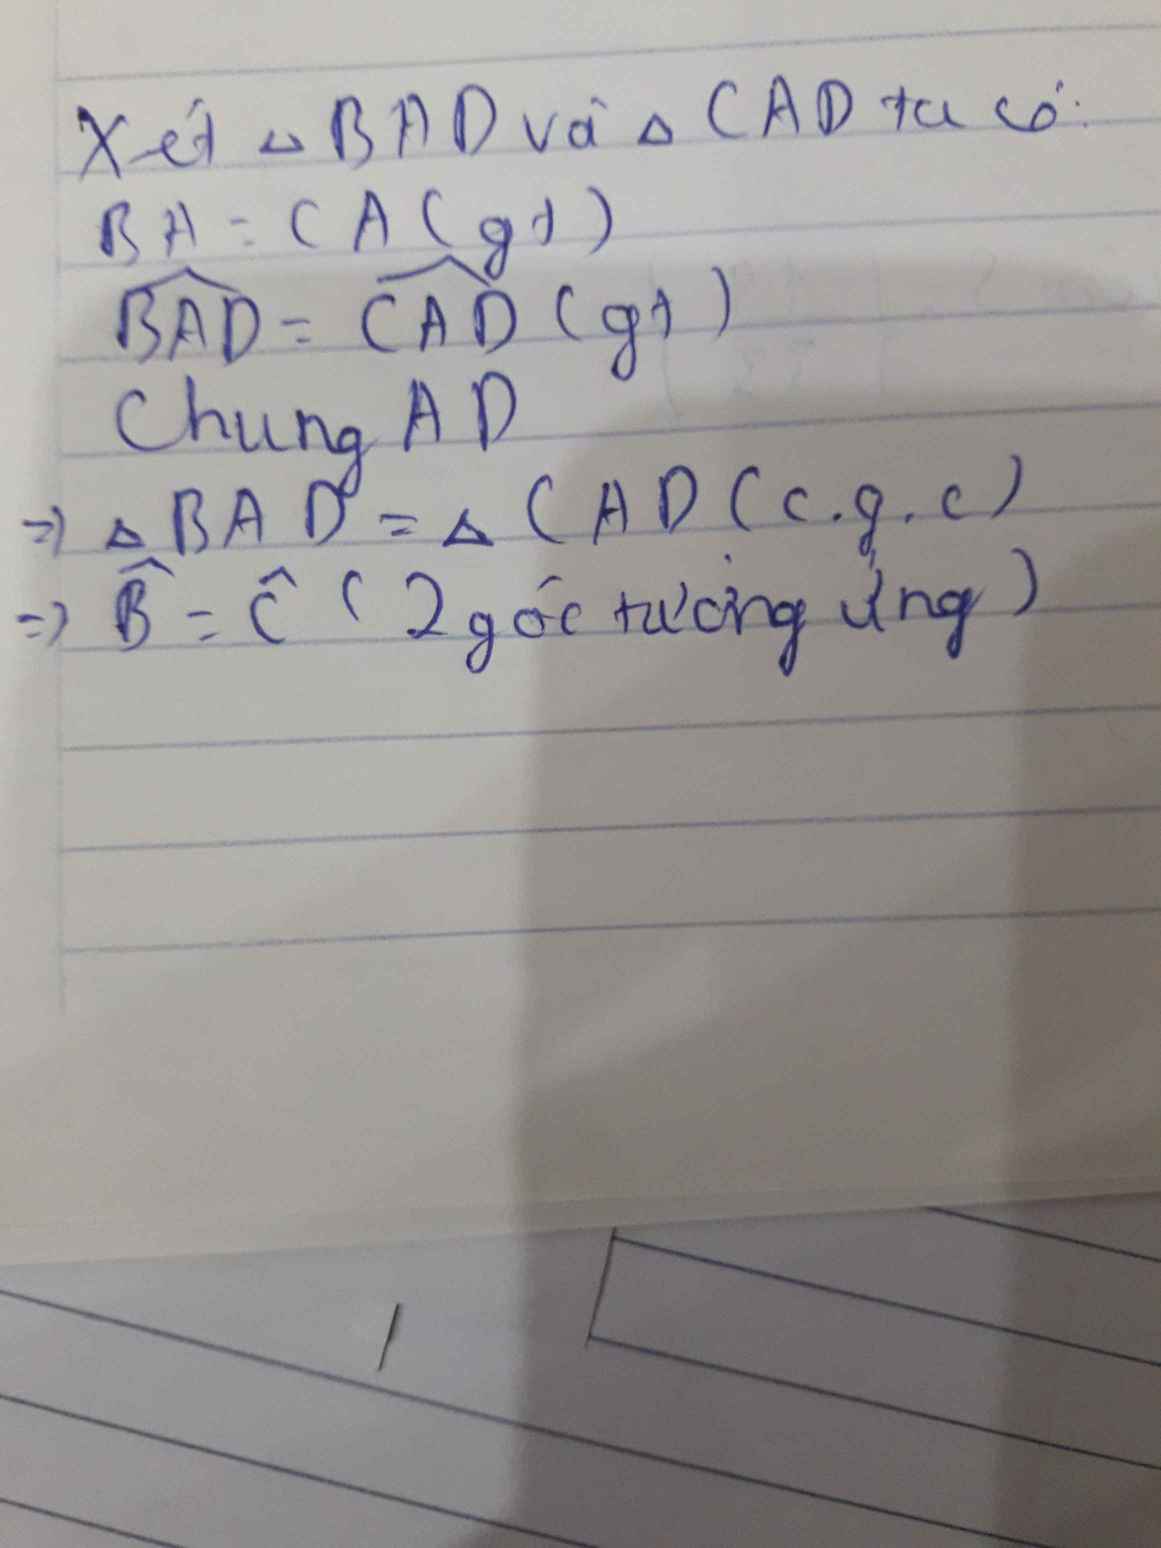 Xét △ BAD và △ CAD ta có:
BA = CA (gt)
\widehat{BAD} = \widehat{CAD} (gt)
Chung AD
=> △ BAD = △ CAD (c.g.c)
=> B̂ = Ĉ (2 góc tương ứng)